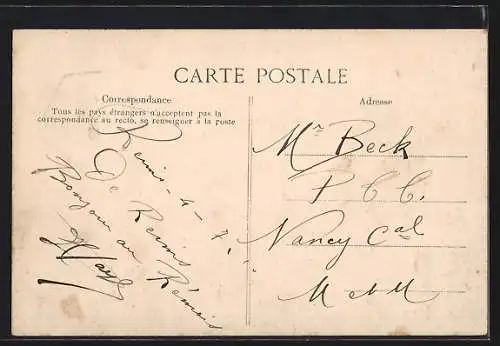 CARTE POSTALE
Correspondance
Tous les pays étrangers n'acceptent pas la
correspondance au recto, se renseigner à la poste
Adresse
Reims - 4 - 7.
De Reims
Bonjour au Rémois
Mr Beck
P C C.
Nancy Cal
M et M